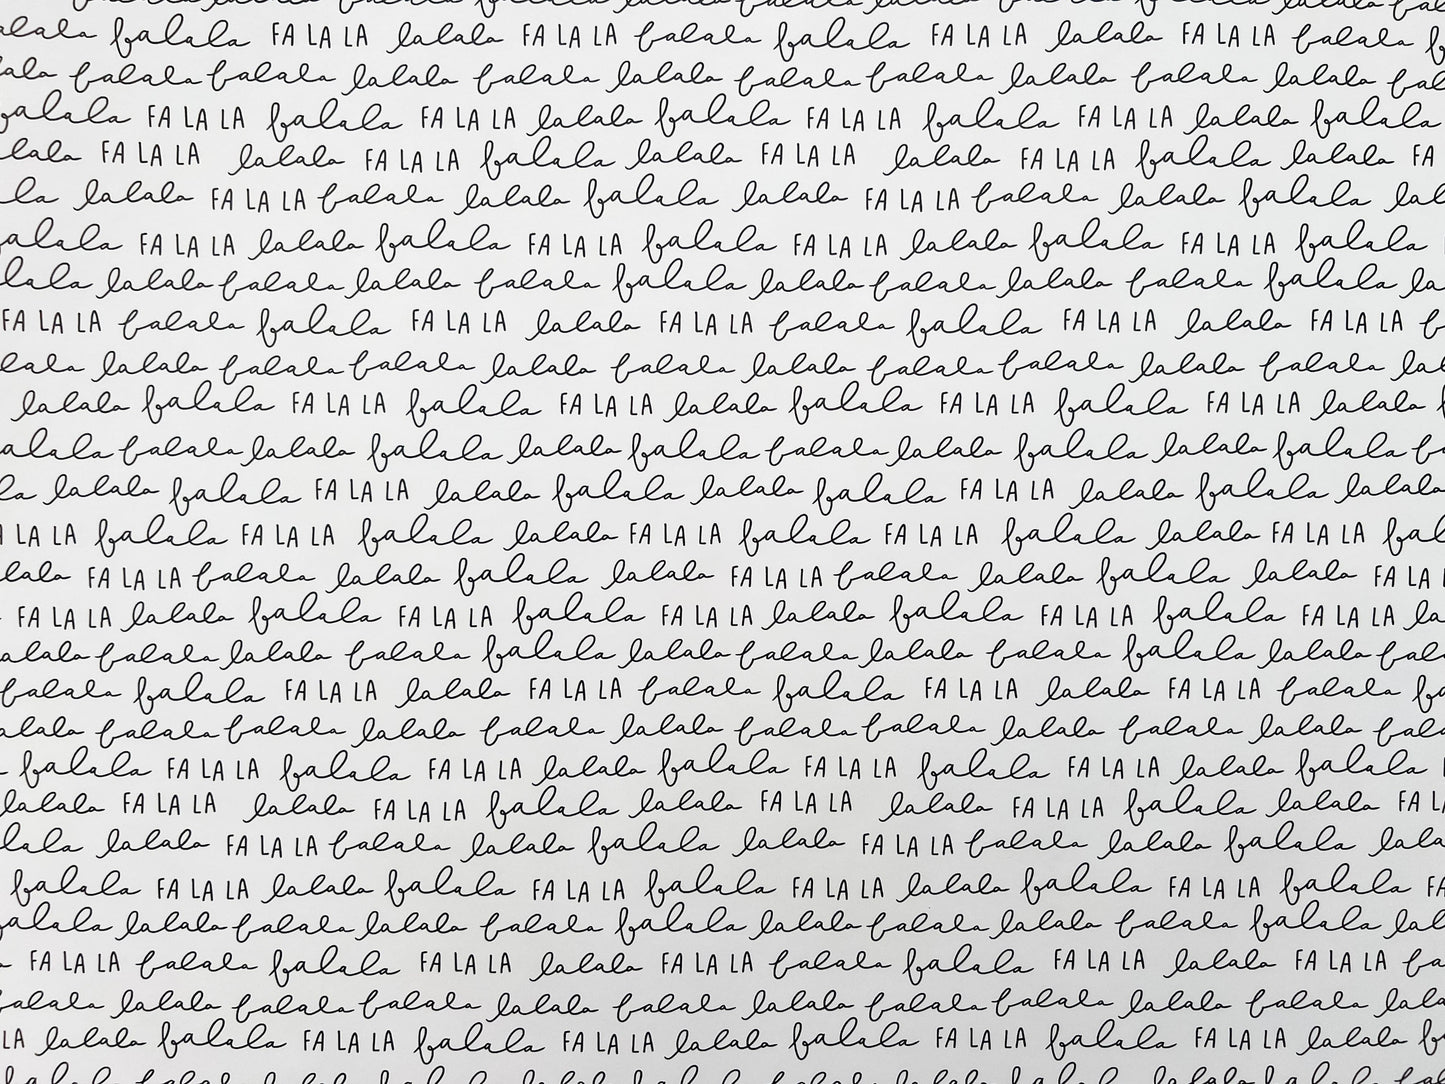 lala falala FA LA LA lalala FA LA LA falala falala FA LA LA lalala FA LA LA falala
ala falala falala lalala falala lalala falala falala lalala falala lalala fal
falala FA LA LA falala FA LA LA lalala falala FA LA LA falala FA LA LA lalala falala
lala FA LA LA lalala FA LA LA falala lalala FA LA LA lalala FA LA LA falala lalala FA
la lalala FA LA LA falala lalala falala lalala FA LA LA falala lalala falala lal
falala FA LA LA lalala falala FA LA LA falala FA LA LA lalala falala FA LA LA falala
lala lalala falala lalala falala falala lalala falala lalala falala falala la
FA LA LA falala falala FA LA LA lalala FA LA LA falala falala FA LA LA lalala FA LA LA
lala lalala falala falala lalala falala lalala falala falala lalala falala lal
lalala falala FA LA LA falala FA LA LA lalala falala FA LA LA falala FA LA LA lalala
alala falala lalala falala lalala falala falala lalala falala lalala falala
la lalala falala FA LA LA lalala falala lalala falala FA LA LA lalala falala lalala
LA LA falala FA LA LA falala lalala FA LA LA falala FA LA LA falala lalala FA LA LA fal
lala FA LA LA falala lalala falala lalala FA LA LA falala lalala falala lalala FA LA
FA LA LA lalala falala FA LA LA falala FA LA LA lalala falala FA LA LA falala FA LA LA la
alala falala lalala falala falala lalala falala lalala falala falala lalala fal
falala falala FA LA LA lalala FA LA LA falala falala FA LA LA lalala FA LA LA falala
alala falala falala lalala falala lalala falala falala lalala falala lalala fal
falala FA LA LA falala FA LA LA lalala falala FA LA LA falala FA LA LA lalala falala
lalala FA LA LA lalala FA LA LA falala lalala FA LA LA lalala FA LA LA falala lalala FA L
lala lalala FA LA LA falala lalala falala lalala FA LA LA falala lalala falala lala
falala FA LA LA lalala falala FA LA LA falala FA LA LA lalala falala FA LA LA falala FA
falala lalala falala lalala falala falala lalala falala lalala falala falala lal
FA LA LA falala falala FA LA LA lalala FA LA LA falala falala FA LA LA lalala FA LA LA fa
falala lalala falala falala lalala falala lalala falala falala lalala falala lala
LA lalala falala FA LA LA falala FA LA LA lalala falala FA LA LA falala FA LA LA lalala